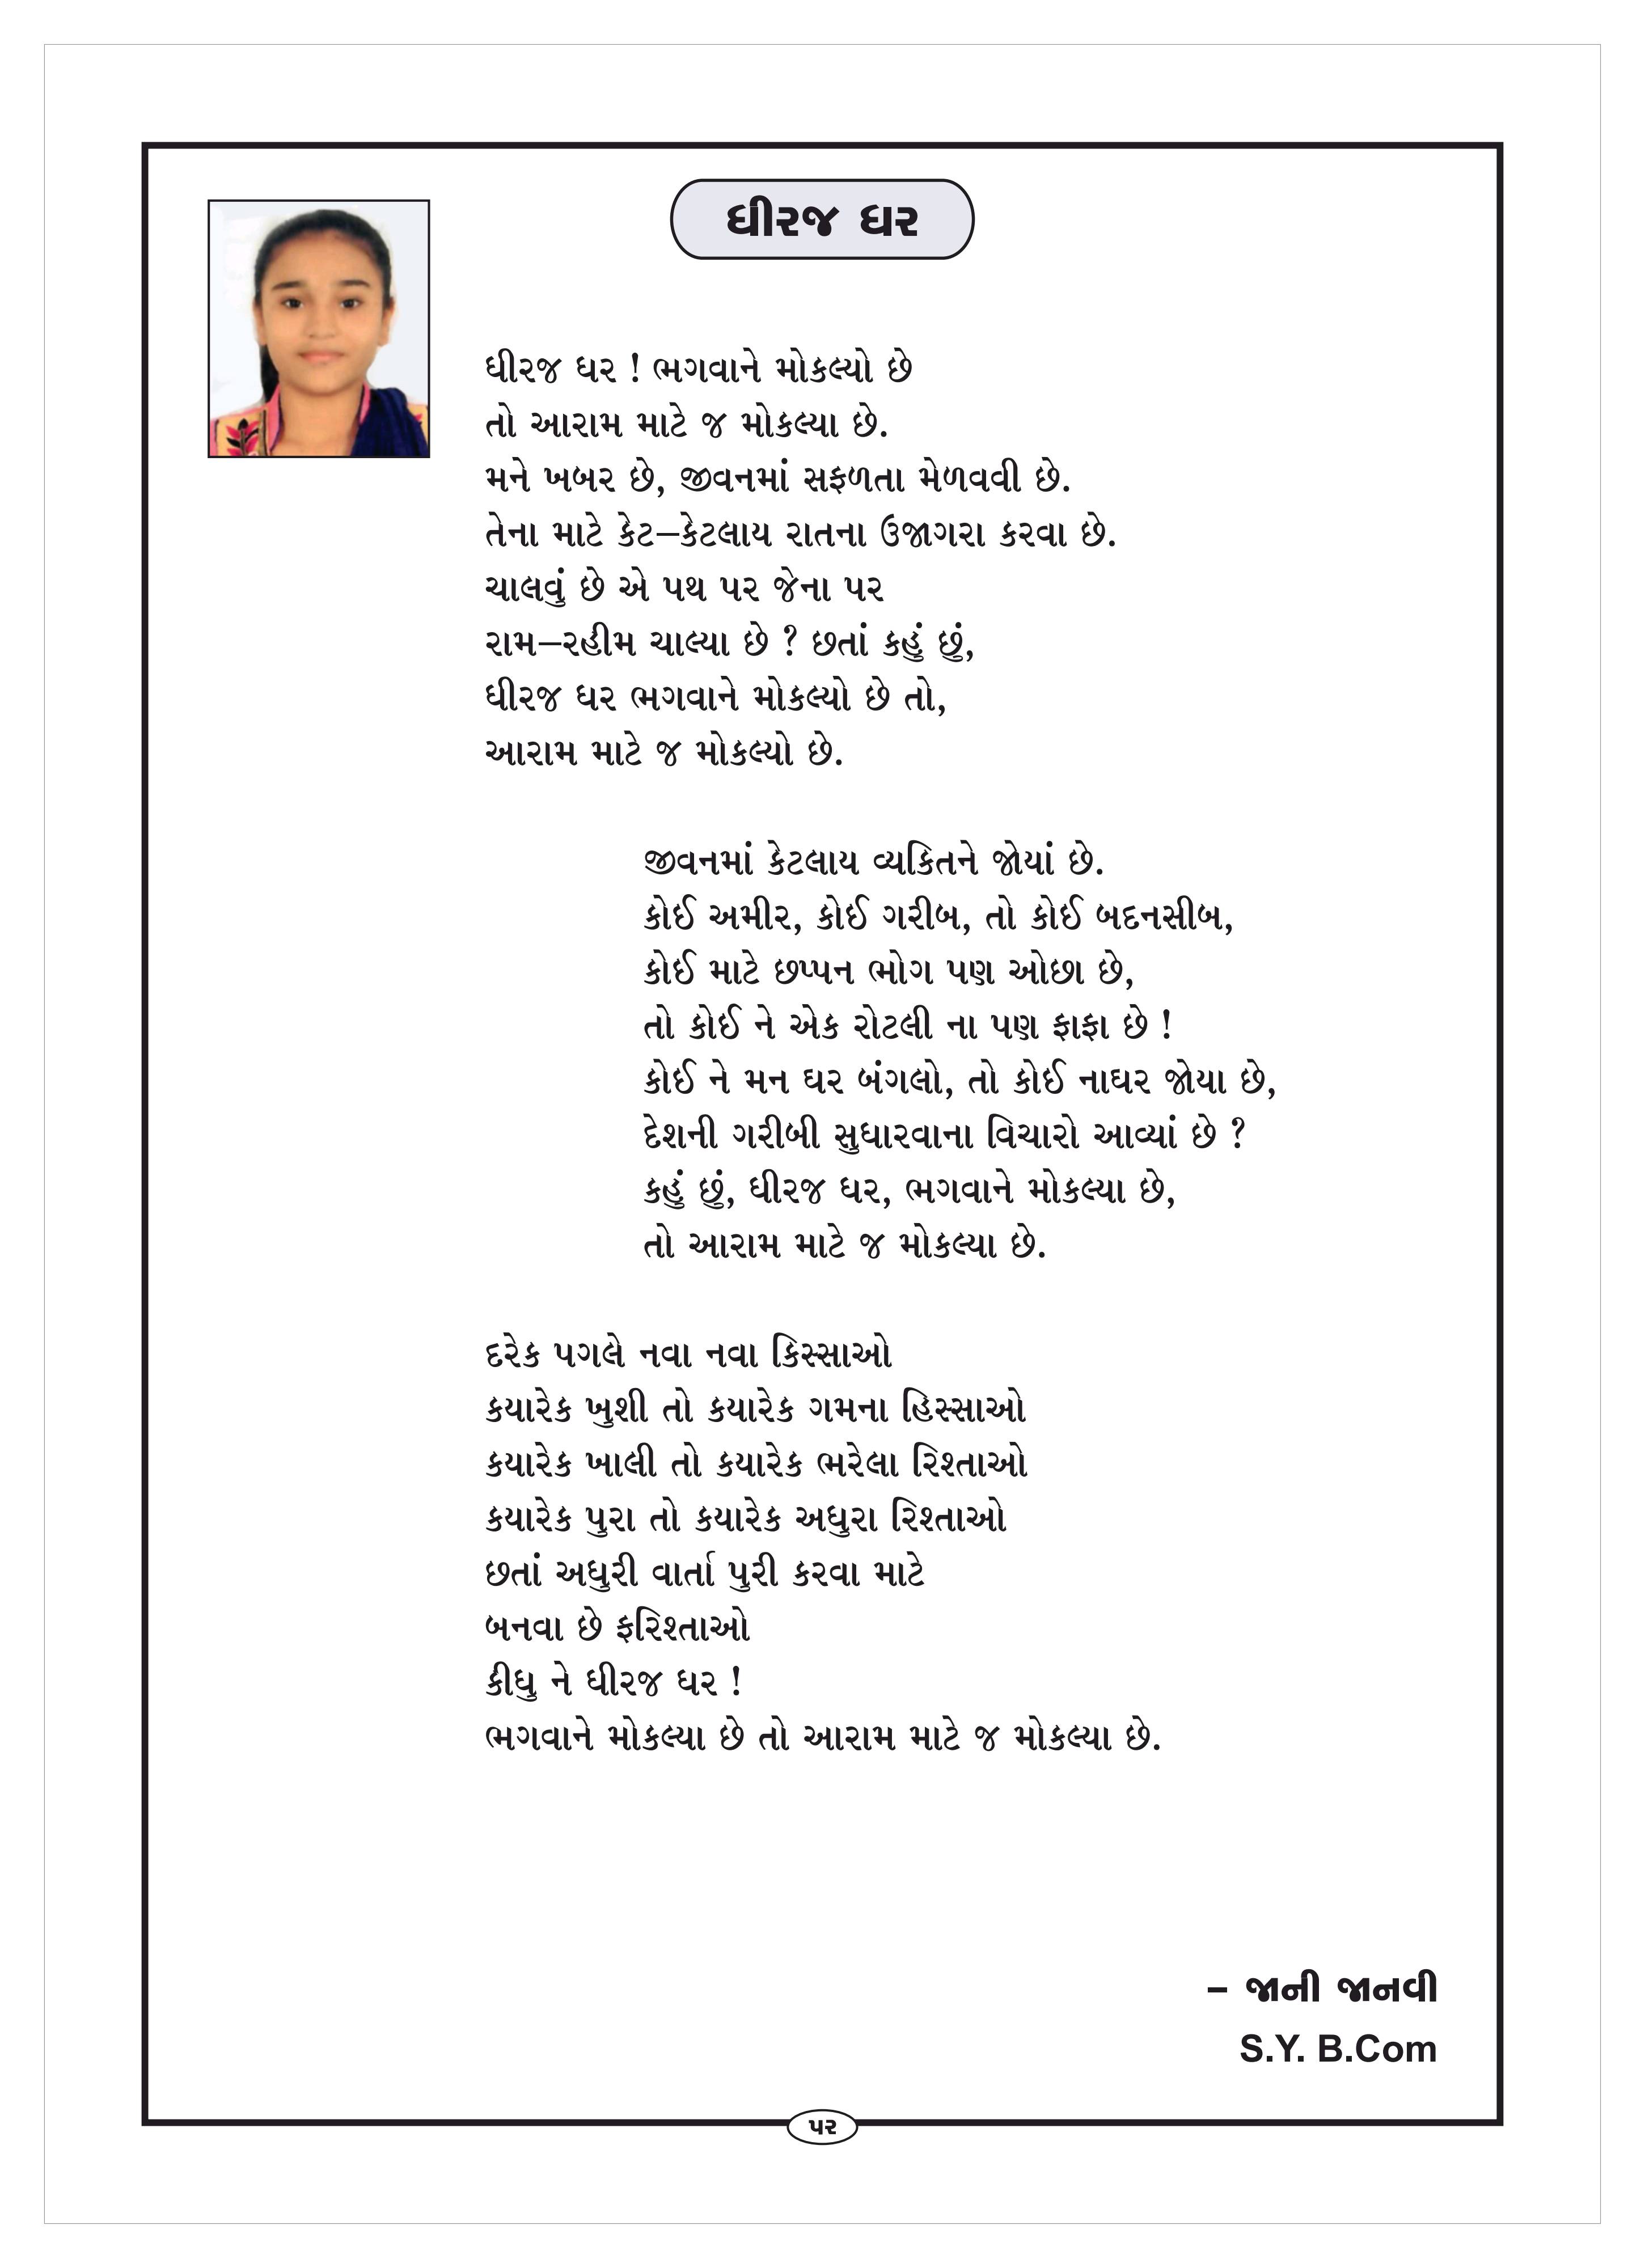 ધીરજ ધર
ધીરજ ધર ! ભગવાને મોકલ્યો છે
તો આરામ માટે જ મોકલ્યા છે.
મને ખબર છે, જીવનમાં સફળતા મેળવવી છે.
તેના માટે કેટ–કેટલાય રાતના ઉજાગરા કરવા છે.
ચાલવું છે એ પથ પર જેના પર
રામ–રહીમ ચાલ્યા છે ? છતાં કહું છું,
ધીરજ ધર ભગવાને મોકલ્યો છે તો,
આરામ માટે જ મોકલ્યો છે.
જીવનમાં કેટલાય વ્યકિતને જોયાં છે.
કોઈ અમીર, કોઈ ગરીબ, તો કોઈ બદનસીબ,
કોઈ માટે છપ્પન ભોગ પણ ઓછા છે,
તો કોઈ ને એક રોટલી ના પણ ફાફા છે !
કોઈ ને મન ઘર બંગલો, તો કોઈ નાઘર જોયા છે,
દેશની ગરીબી સુધારવાના વિચારો આવ્યાં છે ?
કહું છું, ધીરજ ધર, ભગવાને મોકલ્યા છે,
તો આરામ માટે જ મોકલ્યા છે.
દરેક પગલે નવા નવા કિસ્સાઓ
કયારેક ખુશી તો કયારેક ગમના હિસ્સાઓ
કયારેક ખાલી તો કયારેક ભરેલા રિશ્તાઓ
કયારેક પુરા તો કયારેક અધુરા રિશ્તાઓ
છતાં અધુરી વાર્તા પુરી કરવા માટે
બનવા છે ફરિશ્તાઓ
કીધુ ને ધીરજ ધર !
ભગવાને મોકલ્યા છે તો આરામ માટે જ મોકલ્યા છે.
– જાની જાનવી
S.Y. B.Com
૫૨